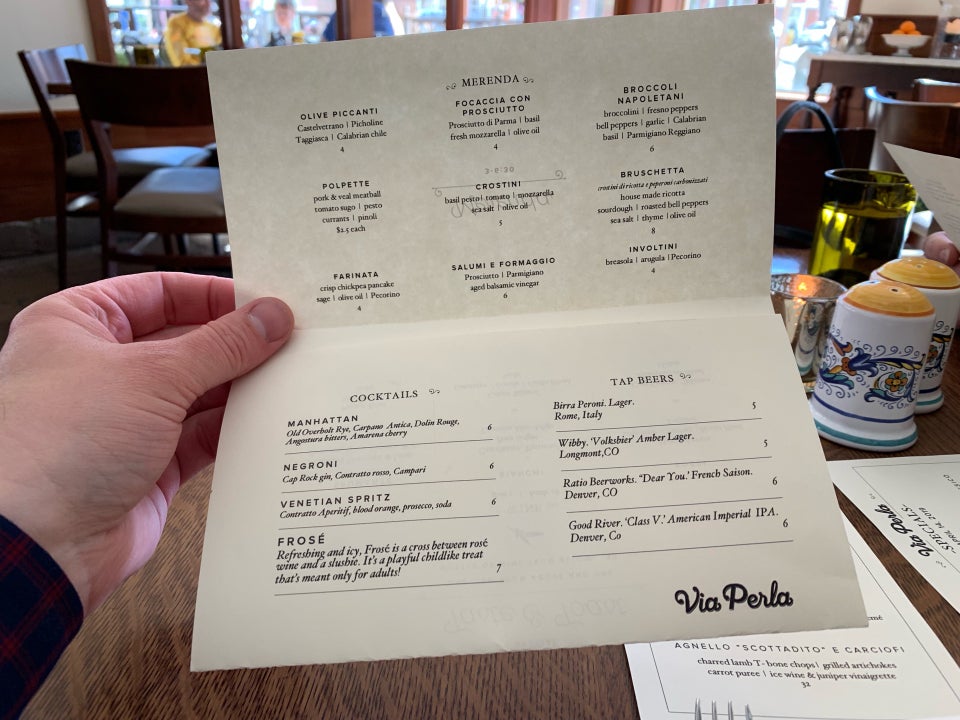 MERENDA
OLIVE PICCANTI
Castelvetrano | Picholine
Taggiasca | Calabrian chile
4
FOCACCIA CON
PROSCIUTTO
Prosciutto di Parma | basil
fresh mozzarella | olive oil
4
BROCCOLI
NAPOLETANI
broccolini | fresno peppers
bell peppers | garlic | Calabrian
basil | Parmigiano Reggiano
6
POLPETTE
pork & veal meatball
tomato sugo | pesto
currants | pinoli
$2.5 each
3-9:30
CROSTINI
basil pesto | tomato | mozzarella
sea salt | olive oil
5
BRUSCHETTA
crostini di ricotta e peperoni carbonizzati
house made ricotta
sourdough | roasted bell peppers
sea salt | thyme | olive oil
8
FARINATA
crisp chickpea pancake
sage | olive oil | Pecorino
4
SALUMI E FORMAGGIO
Prosciutto | Parmigiano
aged balsamic vinegar
6
INVOLTINI
breasola | arugula | Pecorino
4
COCKTAILS
MANHATTAN
Old Overholt Rye, Carpano Antica, Dolin Rouge,
Angostura bitters, Amarena cherry 6
NEGRONI
Cap Rock gin, Contratto rosso, Campari 6
VENETIAN SPRITZ
Contratto Aperitif, blood orange, prosecco, soda 6
FROSÉ
Refreshing and icy, Frosé is a cross between rosé
wine and a slushie. It's a playful childlike treat
that's meant only for adults! 7
TAP BEERS
Birra Peroni. Lager.
Rome, Italy 5
Wibby. 'Volksbier' Amber Lager.
Longmont,CO 5
Ratio Beerworks. "Dear You.' French Saison.
Denver, CO 6
Good River. 'Class V.' American Imperial IPA.
Denver, Co 6
Via Perla
Via Perla
SPECIALS
APRIL 14, 2019
AGNELLO "SCOTTADITO" E CARCIOFI
charred lamb T-bone chops | grilled artichokes
carrot puree | ice wine & juniper vinaigrette
32